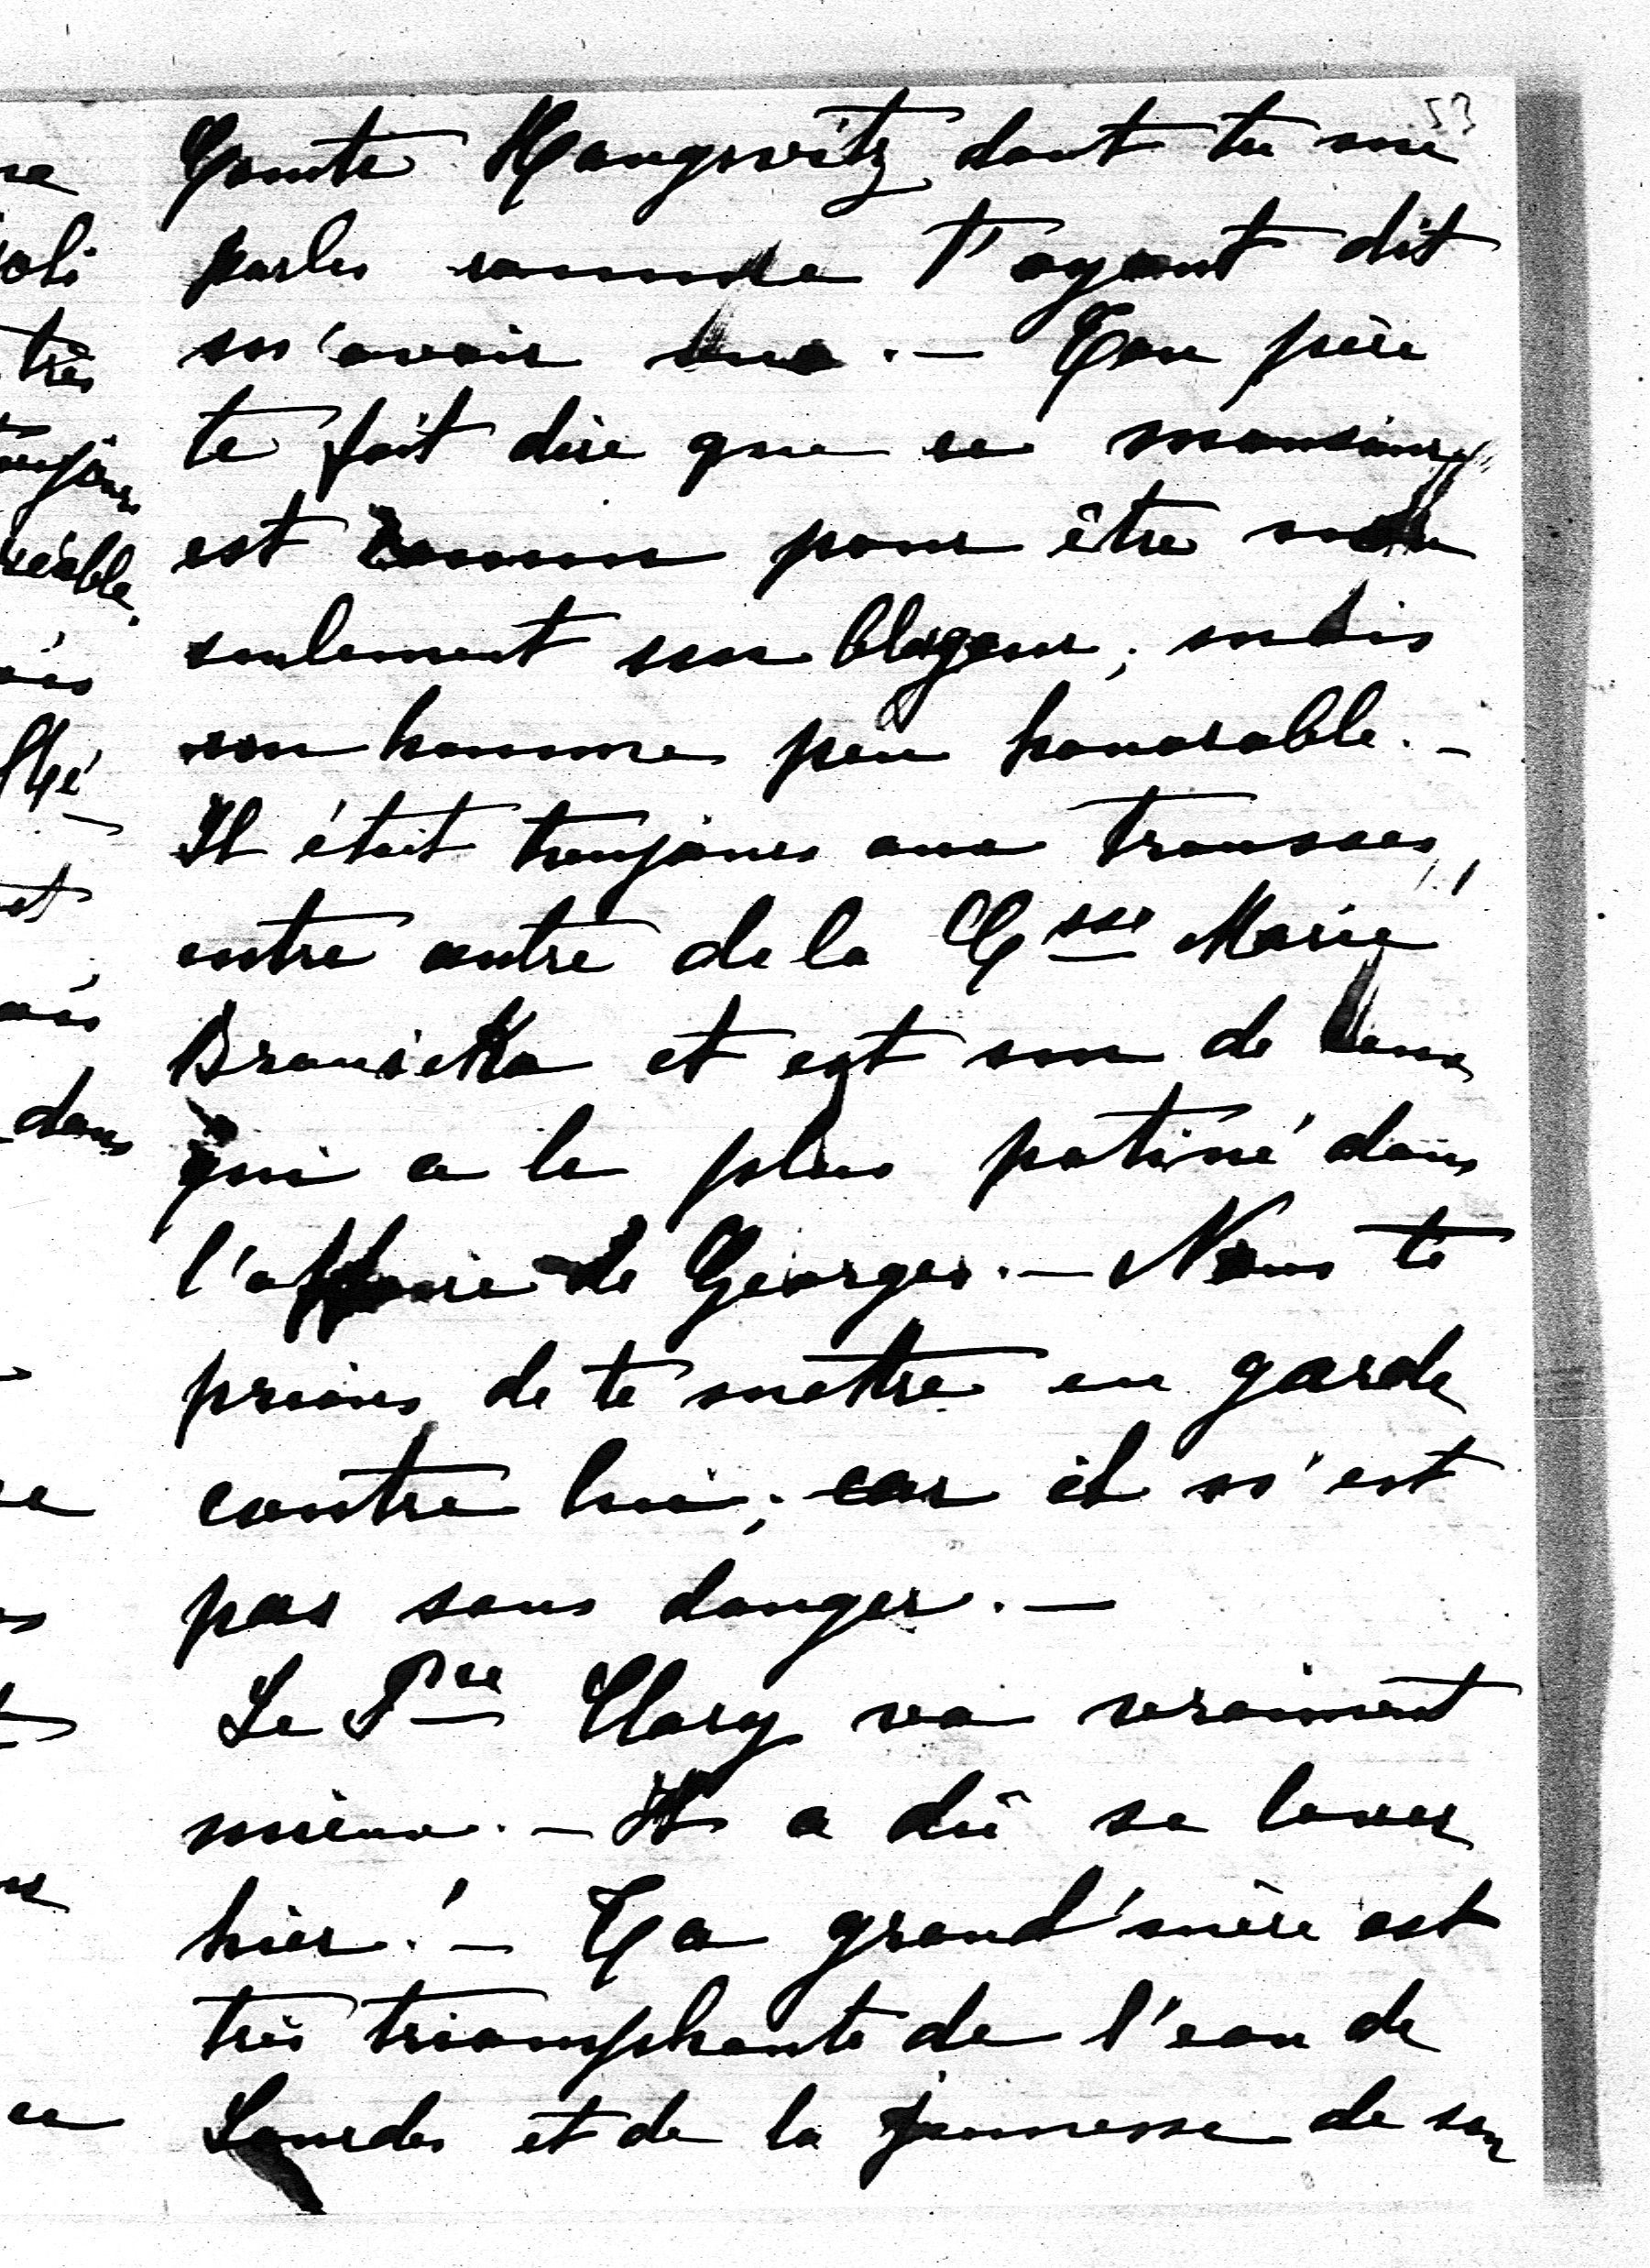 53
Comte Haugwitz dont tu me
parles comme t'ayant dit
m'avoir vue. — Ton père
te fait dire que ce monsieur
est connu pour être non
seulement un blagueur, mais
un homme peu honorable. —
Il était toujours aux trousses,
entre autre de la Csse Marie
Branicka et est un de ceux
qui a le plus potiné dans
l'affaire de Georges. — Nous te
prions de te mettre en garde
contre lui; car il n'est
pas sans danger. —
Le Pce Clary va vraiment
mieux. — Il a dû se lever
hier! — Ta grand'mère est
très triomphante de l'eau de
Lourdes et de la jeunesse de son